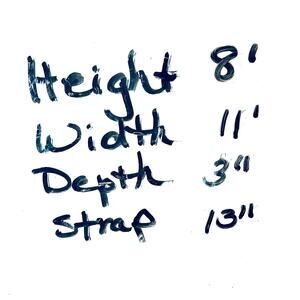 Height 8'
Width 11'
Depth 3"
Strap 13"